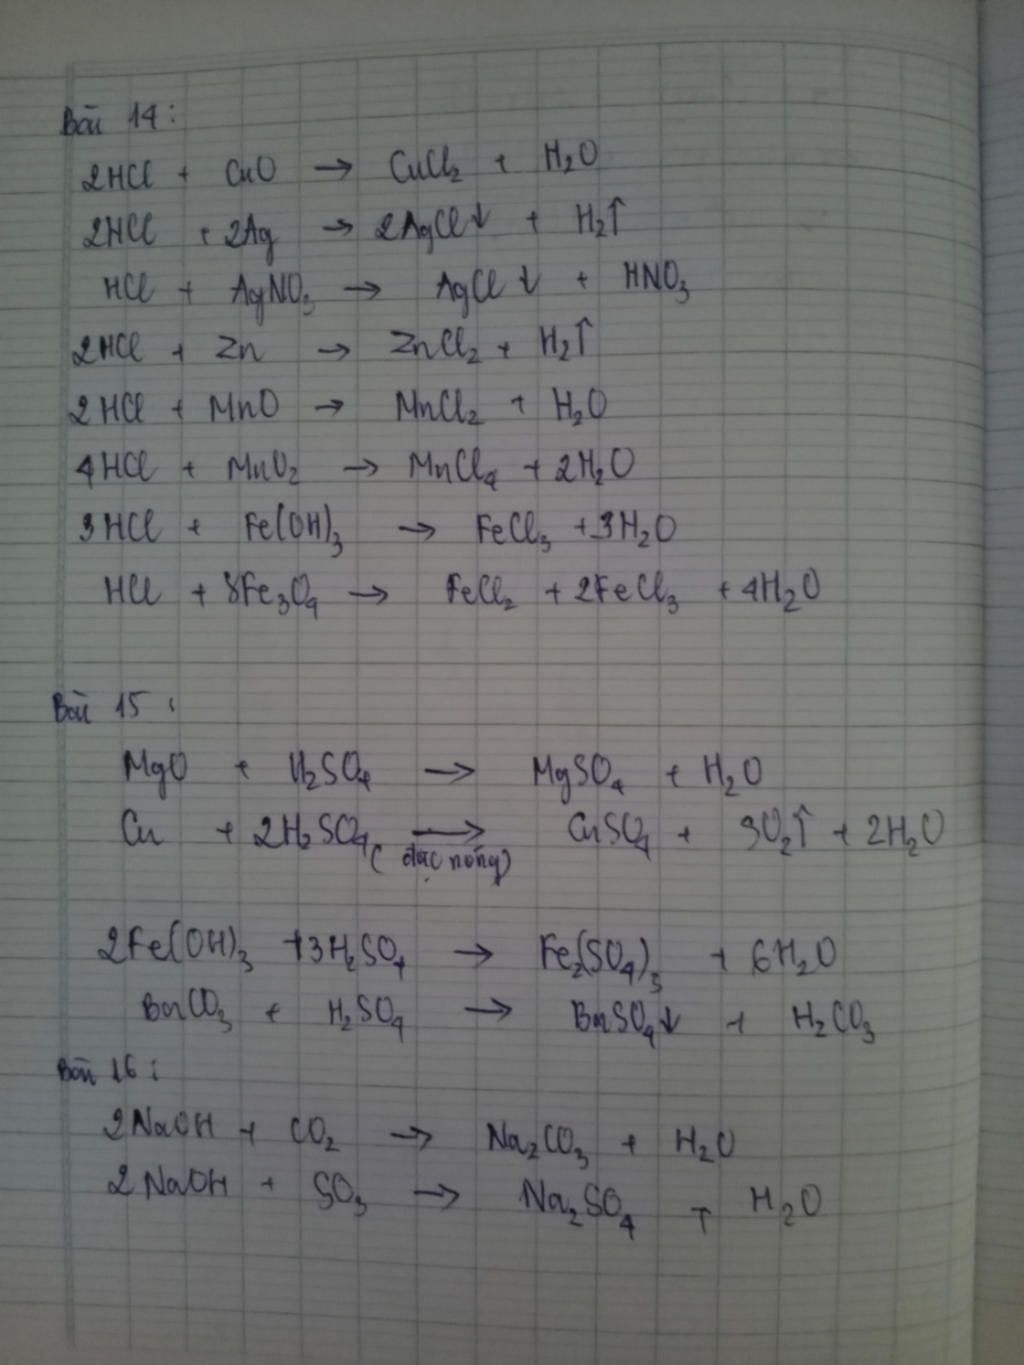 Bài 14:
2HCl + CuO → CuCl₂ + H₂O
2HCl + 2Ag → 2AgCl↓ + H₂↑
HCl + AgNO₃ → AgCl↓ + HNO₃
2HCl + Zn → ZnCl₂ + H₂↑
2HCl + MnO → MnCl₂ + H₂O
4HCl + MnO₂ → MnCl₄ + 2H₂O
3HCl + Fe(OH)₃ → FeCl₃ + 3H₂O
HCl + 8Fe₃O₄ → FeCl₂ + 2FeCl₃ + 4H₂O
Bài 15:
MgO + H₂SO₄ → MgSO₄ + H₂O
Cu + 2H₂SO₄ (đặc nóng) → CuSO₄ + SO₂↑ + 2H₂O
2Fe(OH)₃ + 3H₂SO₄ → Fe₂(SO₄)₃ + 6H₂O
BaCO₃ + H₂SO₄ → BaSO₄↓ + H₂CO₃
Bài 16:
2NaOH + CO₂ → Na₂CO₃ + H₂O
2NaOH + SO₃ → Na₂SO₄ + H₂O